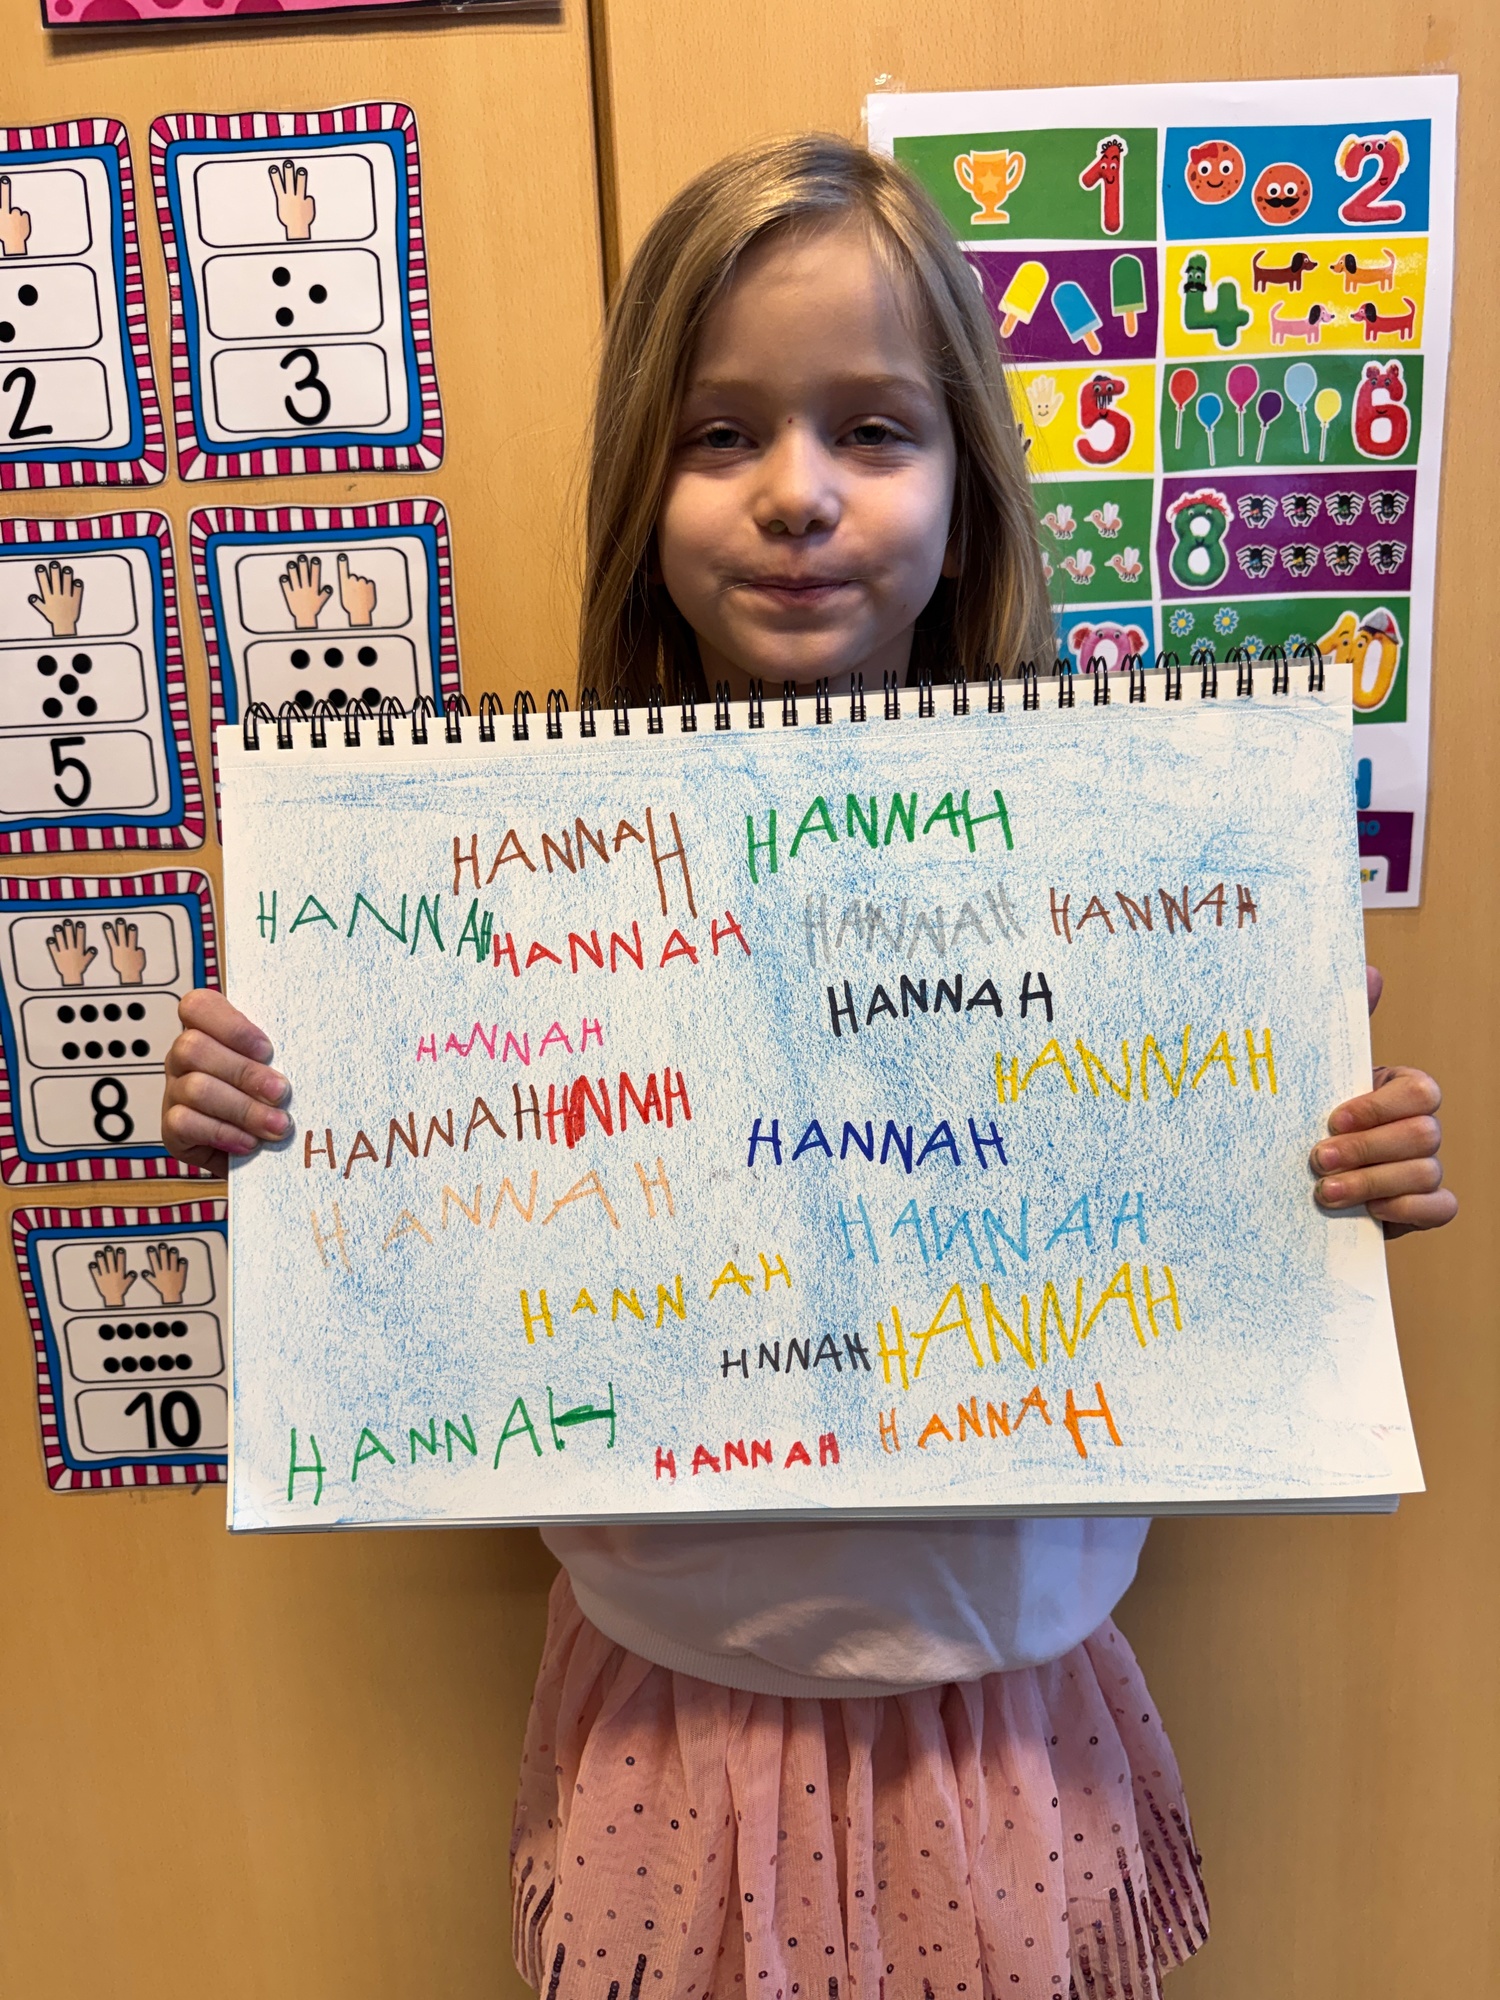 HANNAH HANNAH
HANNAH HANNAH HANNAH HANNAH
HANNAH
HANNAH
HANNAH
HANNAH HNNAH
HANNAH
HANNAH
HANNAH
HANNAH
HNNAH HANNAH
HANNAH HANNAH HANNAH
2
3
5
8
10
1
2
4
5
6
8
10